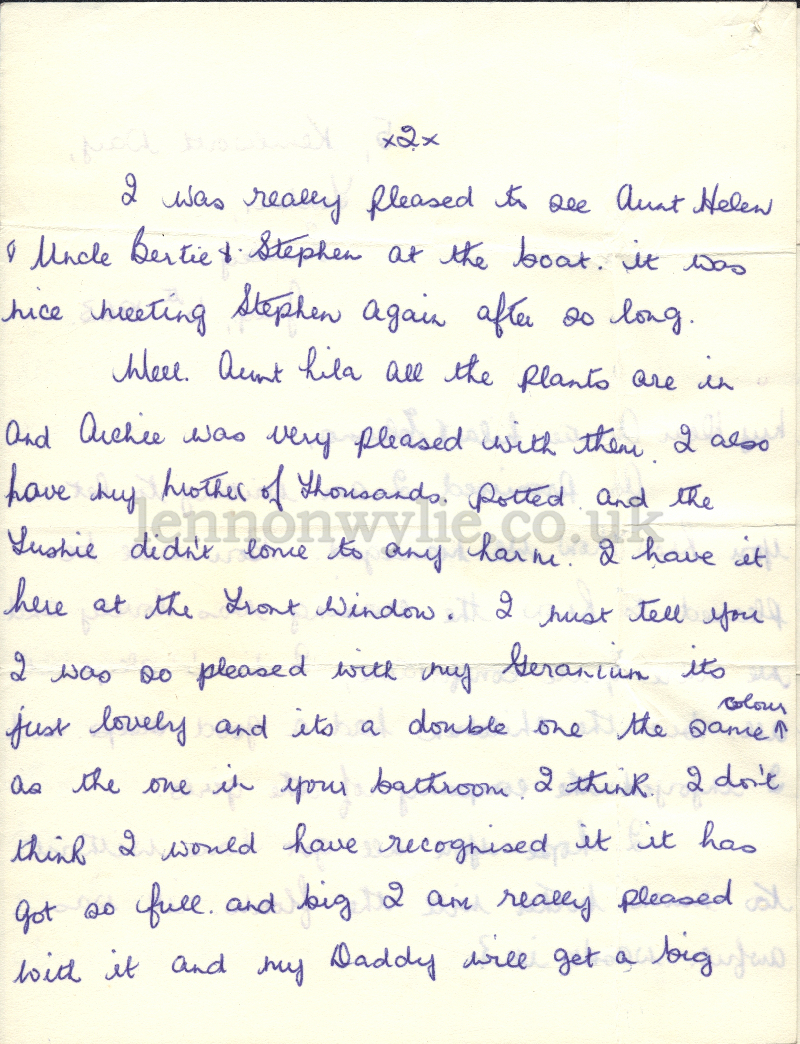 x2x
I was really pleased to see Aunt Helen
& Uncle Bertie & Stephen at the boat. it was
nice meeting Stephen again after so long.
Well. Aunt Lila all the plants are in
and Archie was very pleased with them. I also
have my Mother of Thousands. Potted and the
Fushie didn't come to any harm. I have it
here at the Front Window. I must tell you
I was so pleased with my Geranium its
just lovely and its a double one the same ↑ colour
as the one in your bathroom. I think. I don't
think I would have recognised it it has
got so full. and big I am really pleased
with it and my Daddy will get a big
lennonwylie.co.uk